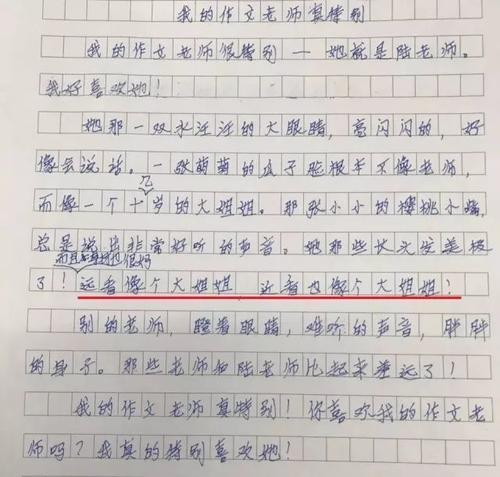 我的作文老师真特别
我的作文老师很特别——她就是陆老师。
我好喜欢她！
她那一双水汪汪的大眼睛，亮闪闪的，好
像会说话。一张萌萌的瓜子脸根本不像老师，
而像一个十几岁的大姐姐。那张小小的樱桃小嘴，
总是说出非常好听的声音。她那些长头发美极
了！远看像个大姐姐，近看也像个大姐姐！
别的老师，瞪着眼睛，难听的声音，胖胖
的身子。那些老师和陆老师比起来差远了！
我的作文老师真特别！你喜欢我的作文老
师吗？我真的特别喜欢她！